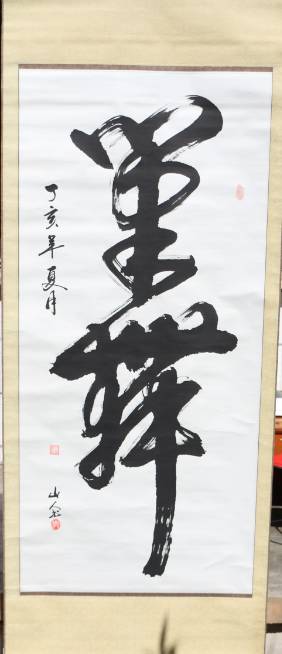 墨舞
丁亥年夏月
山人